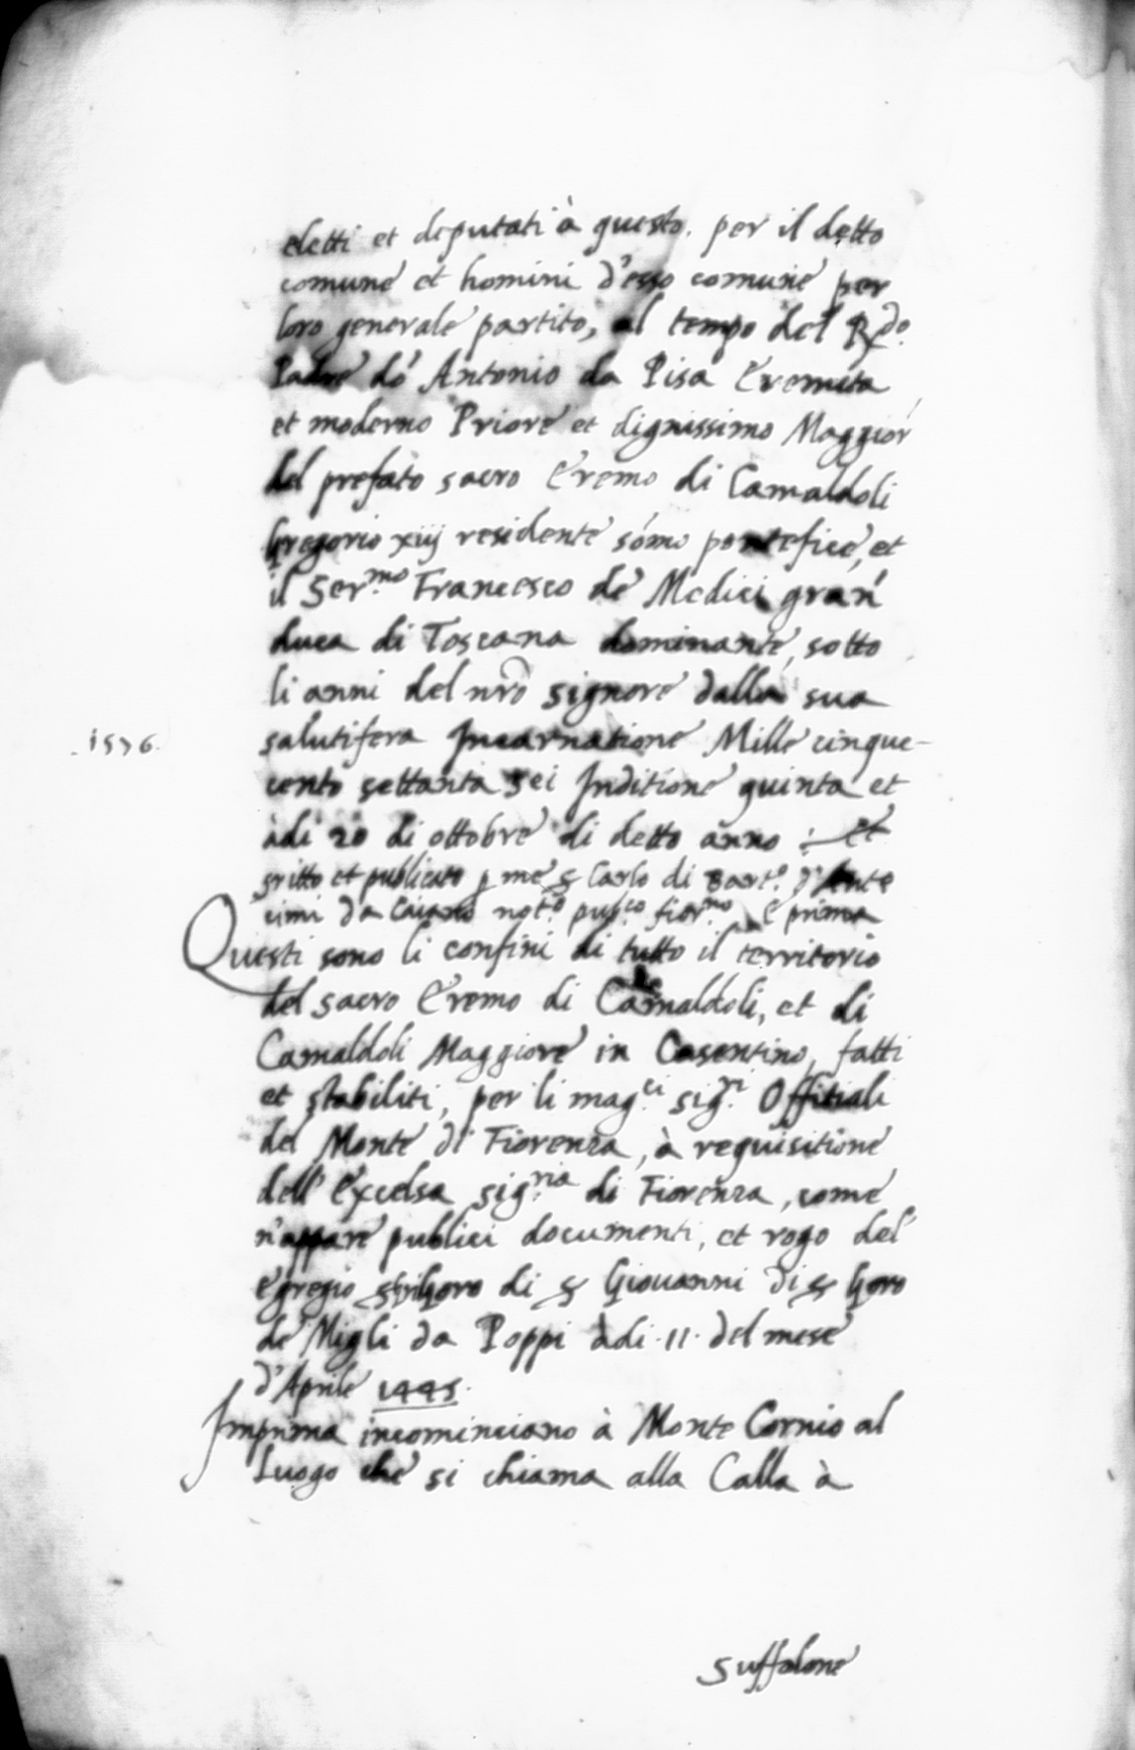 eletti et deputati à questo. per il detto
comune et homini d'esso comune per
loro generale partito, al tempo del R.do
Padre dõ Antonio da Pisa Eremita
et moderno Priore et dignissimo Maggior
del prefato sacro Eremo di Camaldoli
Gregorio xiij residente sómo pontefice, et
il Ser.mo Francesco de Medici gran
duca di Toscana dominante, sotto
li anni del nr̃o signore dalla sua
1576.
salutifera Incarnatione Mille cinque-
cento settanta sei Inditione quinta et
àdi 20 di ottobre di detto anno : et
sritto et publicato p me Carlo di Bart.o
da not.o pub.co fior.no E prima
Questi sono li confini di tutto il territorio
del sacro Eremo di Camaldoli, et di
Camaldoli Maggiore in Casentino, fatti
et stabiliti, per li mag.ci sig.ri Offitiali
del Monte di Fiorenza, à requisitione
dell' Excelsa sig.ria di Fiorenza, come
n'appare publici documenti, et rogo del
egregio di Giovanni di Goro
de Migli da Poppi àdi .11. del mese
d'Aprile 1445.
Imprima incominciano à Monte Cornio al
Luogo che si chiama alla Calla à
suffolone